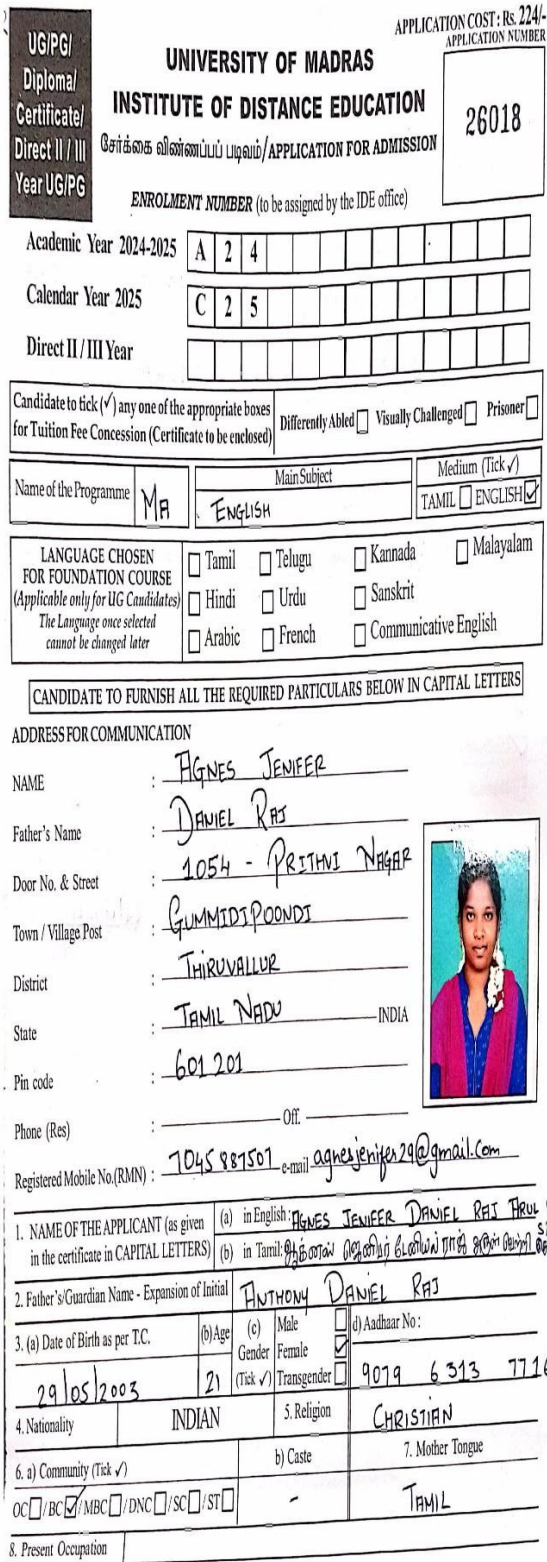 UG/PG/
Diploma/
Certificate/
Direct II / III
Year UG/PG
APPLICATION COST: Rs. 224/-
APPLICATION NUMBER
26018
UNIVERSITY OF MADRAS
INSTITUTE OF DISTANCE EDUCATION
சேர்க்கை விண்ணப்பப் படிவம்/APPLICATION FOR ADMISSION
ENROLMENT NUMBER (to be assigned by the IDE office)
Academic Year 2024-2025 A 2 4
Calendar Year 2025 C 2 5
Direct II / III Year
Candidate to tick (✓) any one of the appropriate boxes
for Tuition Fee Concession (Certificate to be enclosed)
Differently Abled Visually Challenged Prisoner
Name of the Programme MA
Main Subject
ENGLISH
Medium (Tick ✓)
TAMIL ENGLISH ✓
LANGUAGE CHOSEN
FOR FOUNDATION COURSE
(Applicable only for UG Candidates)
The Language once selected
cannot be changed later
Tamil Telugu Kannada Malayalam
Hindi Urdu Sanskrit
Arabic French Communicative English
CANDIDATE TO FURNISH ALL THE REQUIRED PARTICULARS BELOW IN CAPITAL LETTERS
ADDRESS FOR COMMUNICATION
NAME : AGNES JENIFER
Father's Name : DANIEL RAJ
Door No. & Street : 1054 - PRITHVI NAGAR
Town / Village Post : GUMMIDIPOONDI
District : THIRUVALLUR
State : TAMIL NADU INDIA
Pin code : 601 201
Phone (Res) : Off.
Registered Mobile No.(RMN) : 7045 887507 e-mail agnesjenifer29@gmail.com
1. NAME OF THE APPLICANT (as given
in the certificate in CAPITAL LETTERS)
(a) in English: AGNES JENIFER DANIEL RAJ ARUL
(b) in Tamil: ஆக்னஸ் ஜெனிபர் டேனியல் ராஜ் அருள்
2. Father's/Guardian Name - Expansion of Initial ANTHONY DANIEL RAJ
3. (a) Date of Birth as per T.C.
29/05/2003
(b) Age
21
(c)
Gender
(Tick ✓)
Male
Female ✓
Transgender
d) Aadhaar No :
9079 6313 7716
4. Nationality INDIAN
5. Religion CHRISTIAN
6. a) Community (Tick ✓)
OC / BC ✓ / MBC / DNC / SC / ST
b) Caste
-
7. Mother Tongue
TAMIL
8. Present Occupation